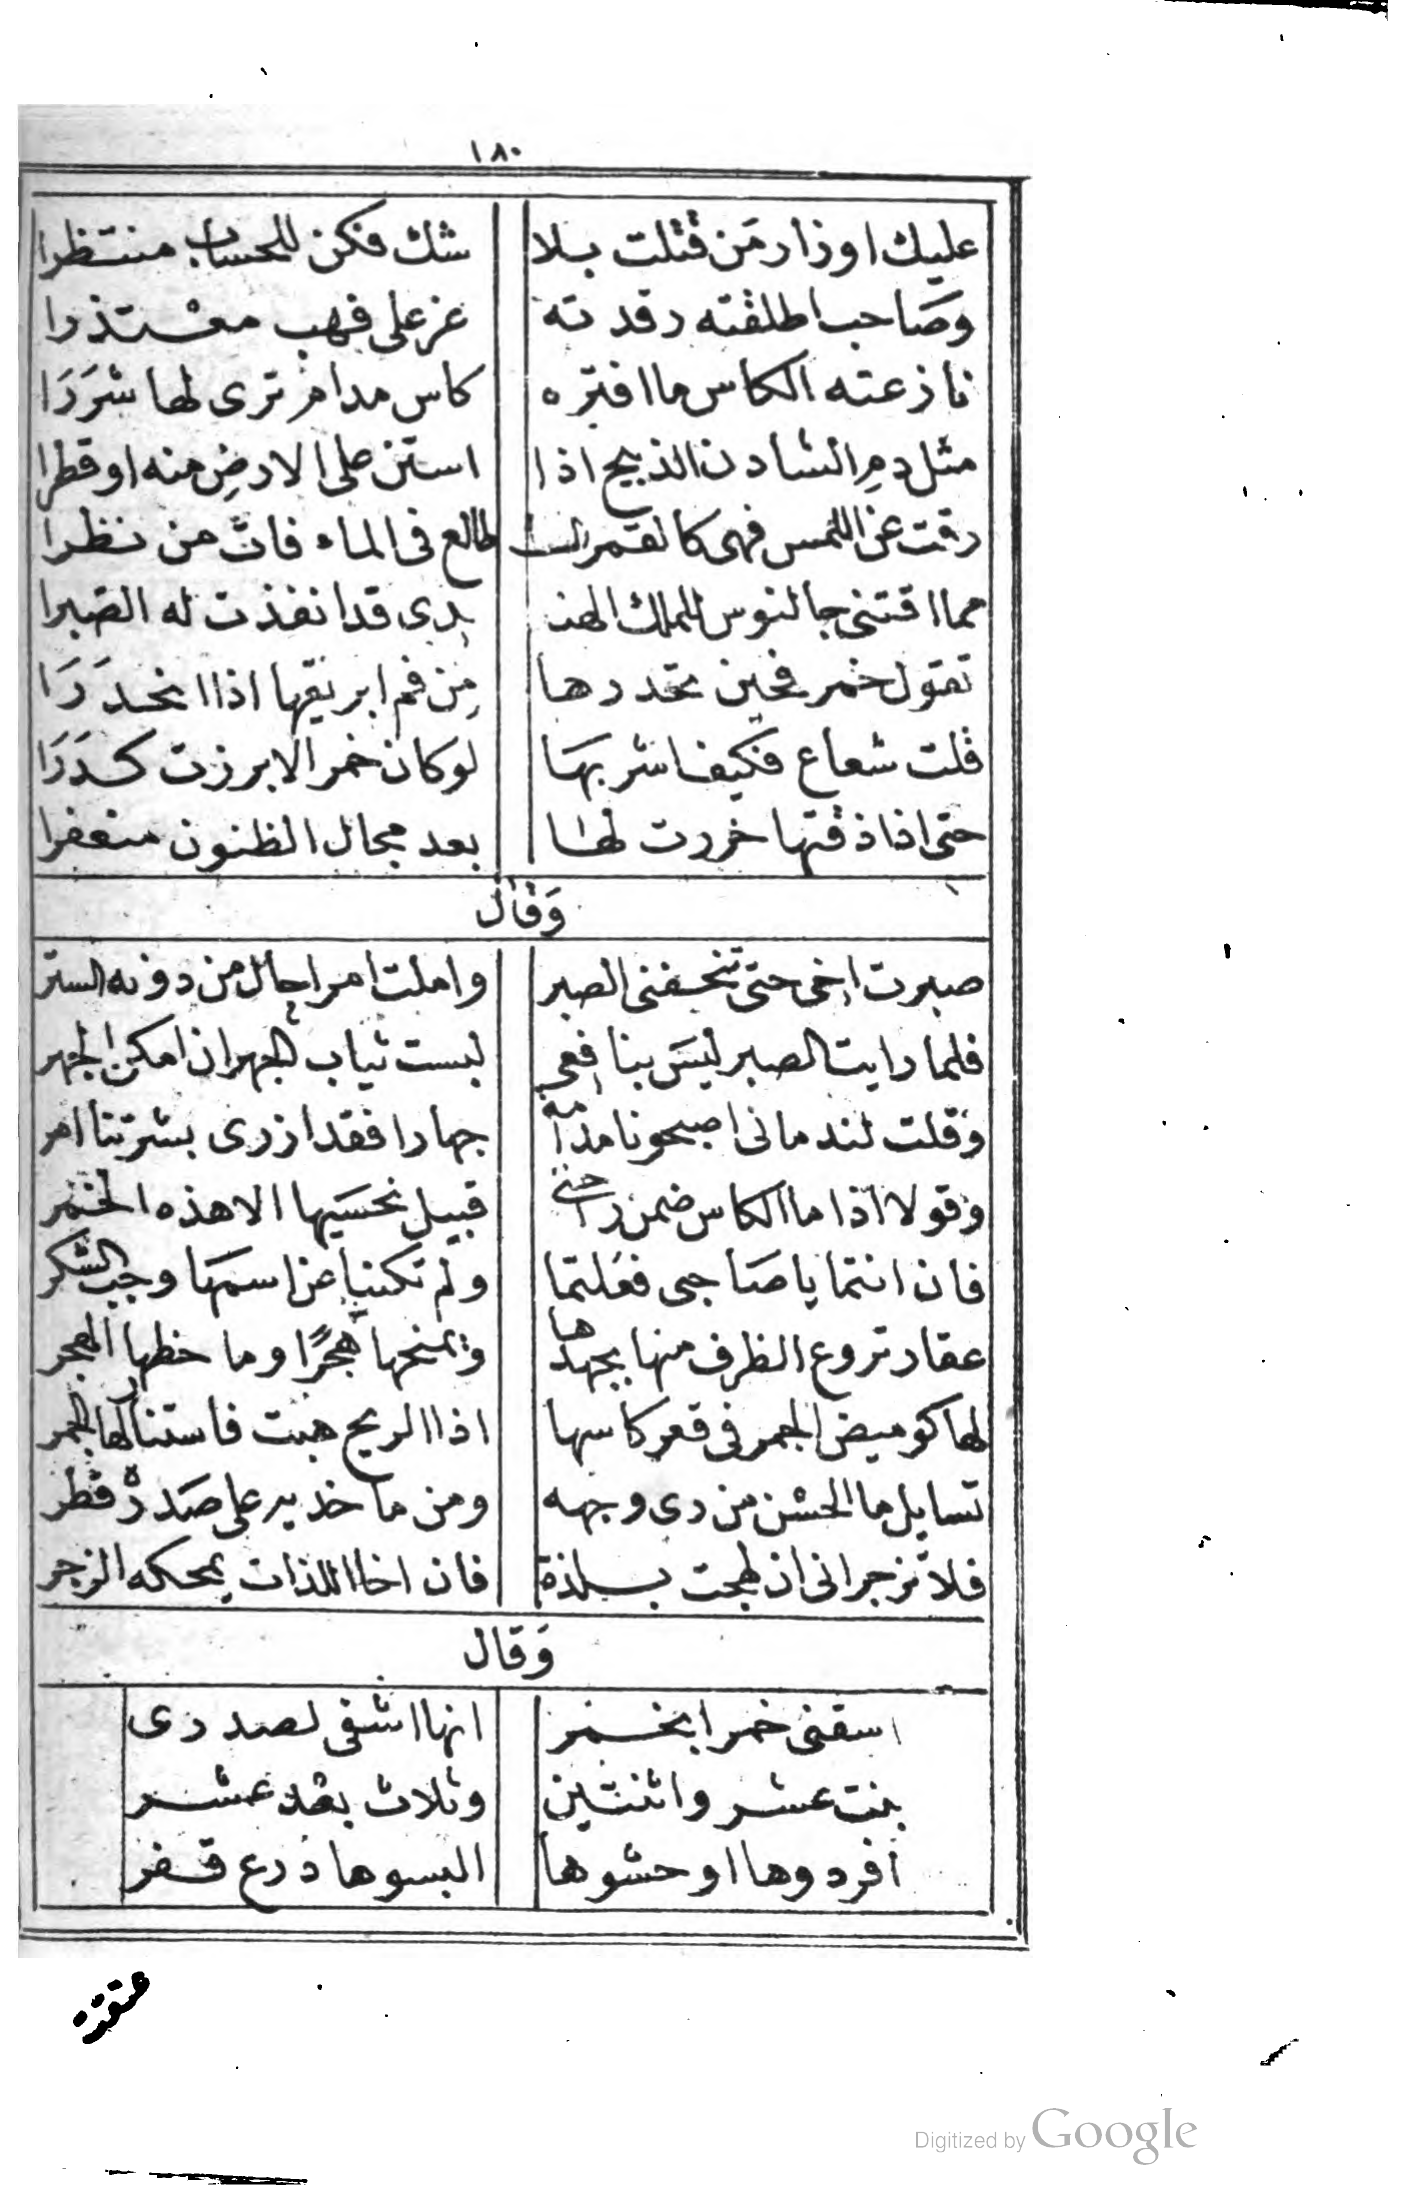 ١٨٠
عليك اوزار مَن قتلت بلا شك فكن للحساب منتظرا
وصَاحب اطلقته رقدته عز على فهب معتذرا
نازعته الكاس ما افتره كاس مدام ترى لها شرَرَا
مثل دمِ الشادن الذبيح اذا استن على الارضِ منه او قطرا
رقت عن اللمس فهى كالقمر الطالع فى الماء فات من نظرا
مما اقتنى جالنوس للملك الهندى قد انفذت له الصبرا
تقول خمر فحين تحدرها مِن فم ابريقها اذا انحدَرَا
قلت شعاع فكيف اشربهَا لو كان خمر الابرزت كدَرَا
حتى اذا ذقتها خررت لها بعد مجال الظنون منعفرا
وَقال
صبرت اخى حتى تنحفنى الصبر واملت امرا حال من دونه الستر
فلما رايت الصبر ليسَ بنافعى لبست ثياب الجهر ان امكن الجهر
وقلت لندمانى اصبحونا مدامه جهارا فقد ازرى بشرتنا امر
وقولا اذا ما الكاس ضمن راحتى قبيل نحسَيها الا هذه الخمر
فان انتما يا صَاحبى فعَلتما ولم تكنيا عن اسمهَا وجب الشكر
عقار تروع الظرف منها بجهدها ويمنحها هجرًا وما حظها الهجر
لها كوميض الجمر فى قعر كاسها اذا الريح هبت فاستنالها الجمر
تسايل ما الحسن من دى وجهه ومن ما خديه على صَدره قطر
فلا تزجرانى ان لهجت بلذة فان اخا اللذات يمحكه الزجر
وَقال
اسقنى خمرا بخمر انها اشفى لصدرى
بنت عشر واثنتين وثلاث بعد عشر
افردوها اوحشوها البسوها درع قفر
عتقت
Digitized by Google